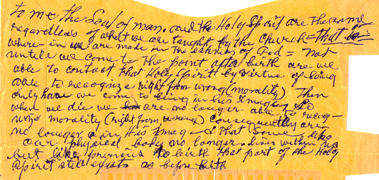 to me the Soul of man. and the Holy Spirit are the same
regardless of what we are taught by the Church - that is:
where in we are made in the of God = not
until we come to the point after birth are we
able to contact that Holy Spirit by virtue of being
able to recognize right from wrong (morality) Then
only have we come to being in his Image. So
when we die we are no longer able to recog-
nize morality (right from wrong) Consequently are
no longer in His Image and that Soul
Our physical body no longer lives within us
but like previous to birth that part of the Holy
Spirit still exists as before birth